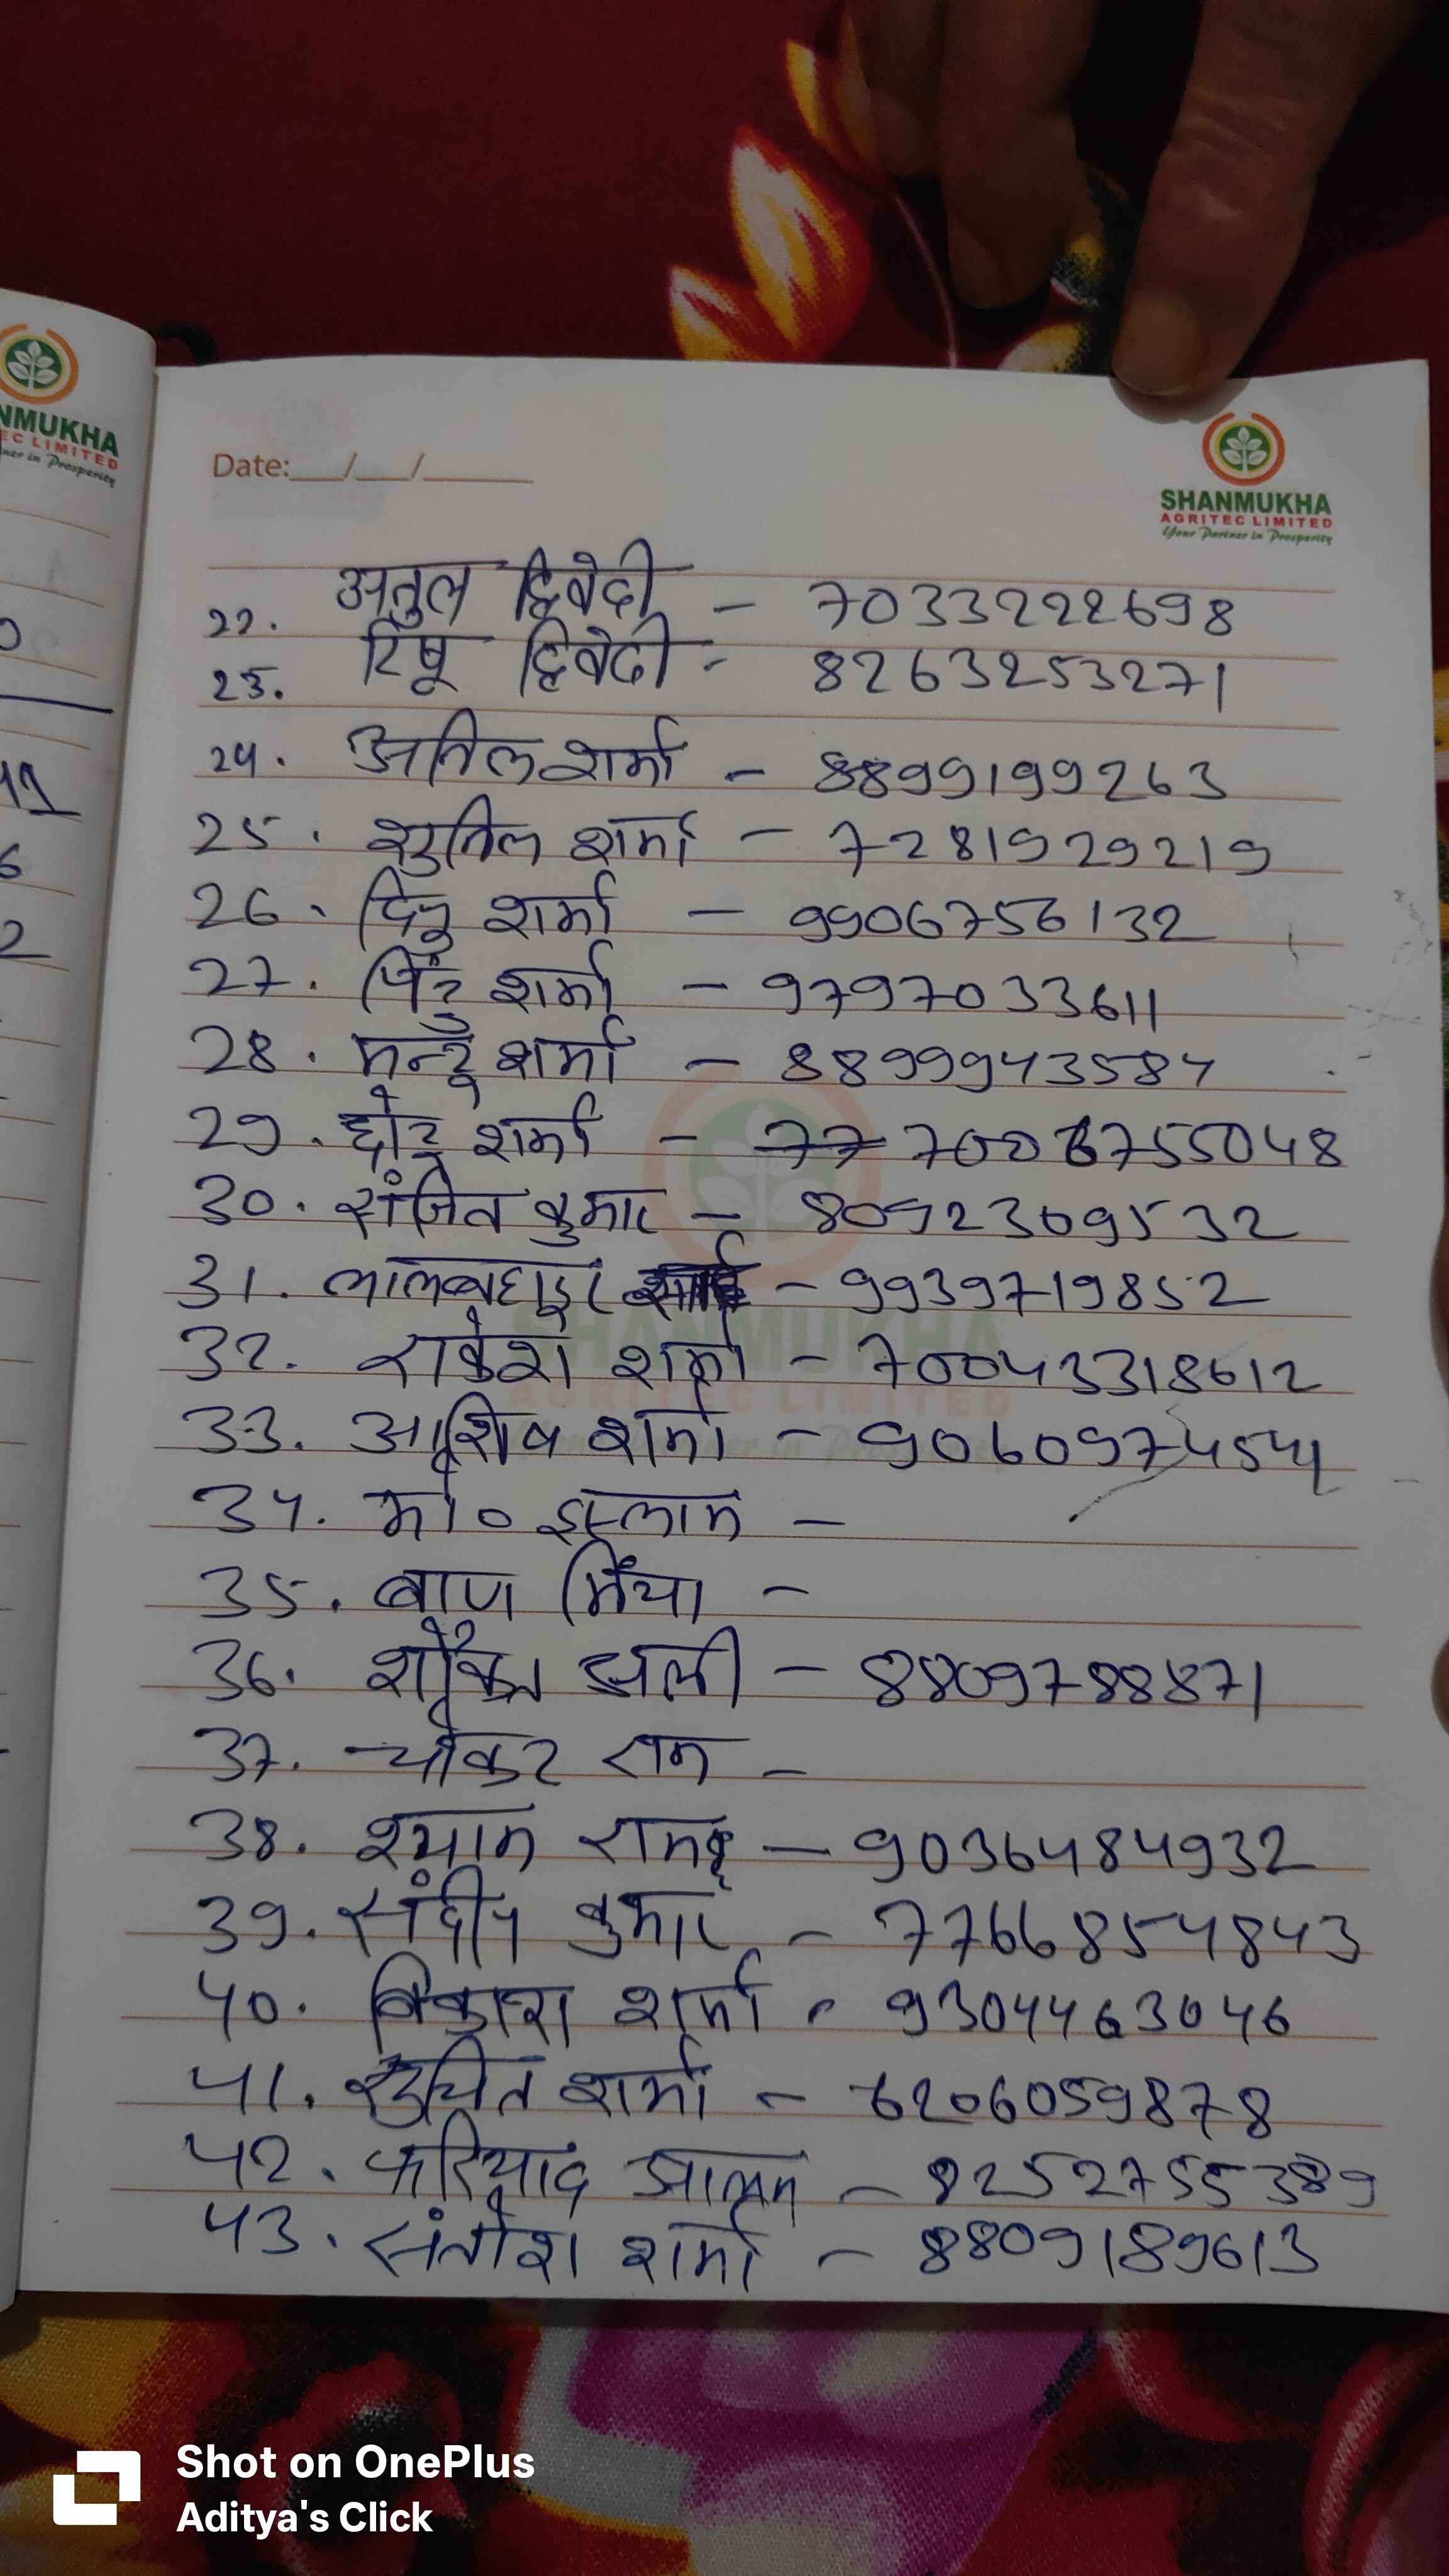 NMUKHA
EC LIMITED
ner in Prosperity
Date:__/__/____
SHANMUKHA
AGRITEC LIMITED
Your Partner in Prosperity
22. अतुल द्विवेदी - 7033222698
23. रिषू द्विवेदी - 8263253271
24. अनिल शर्मा - 8899199263
25. सुनिल शर्मा - 7281929219
26. शर्मा - 9906756132
27. पिंटु शर्मा - 9797033611
28. मन्टू शर्मा - 8899943584
29. छोटे शर्मा - 77 7006755048
30. संजित कुमार - 8092369532
31. लालबहादुर - 9939719852
32. राकेश शर्मा - 70043318612
33. आशिष शर्मा - 9060974541
34. मो० इस्लाम -
35. मिंया -
36. शौकत अली - 8809788871
37. राम -
38. श्याम राम - 9036484932
39. संदीप कुमार - 7766854843
40. विकाश शर्मा - 9304463046
41. सुचित शर्मा - 6206059878
42. फरियाद आलम - 8252755389
43. संतोश शर्मा - 8809189613
SHANMUKHA
AGRITEC LIMITED
Shot on OnePlus
Aditya's Click